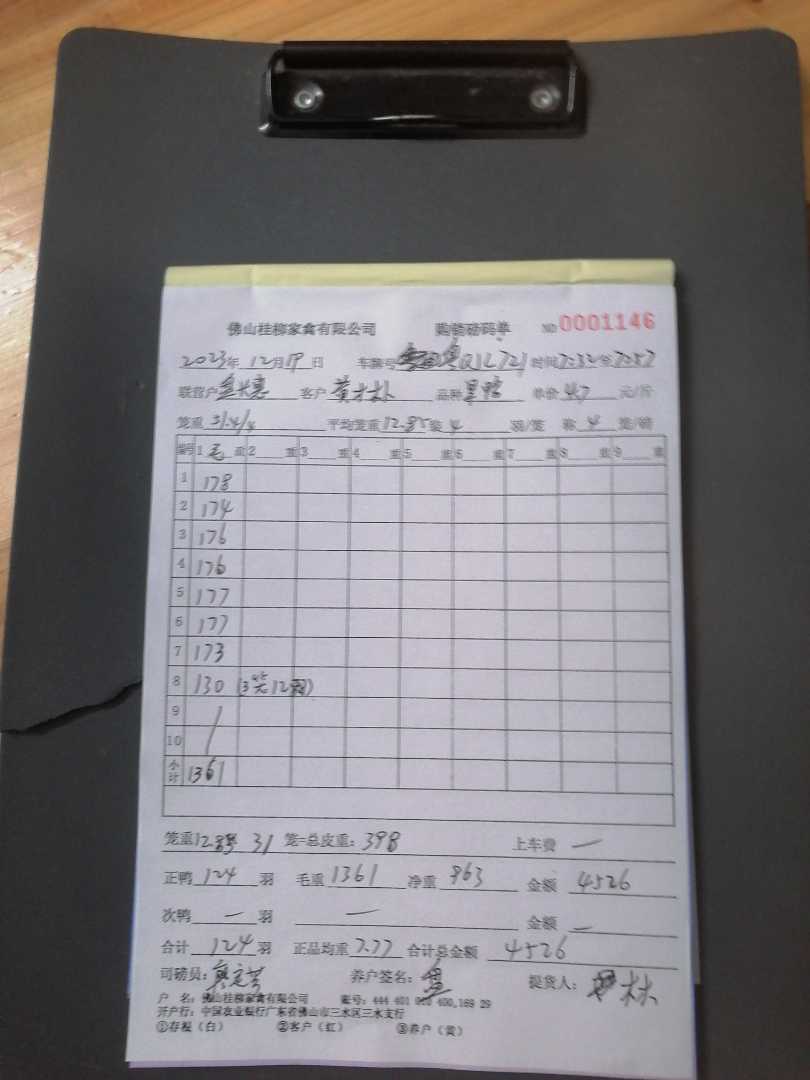 佛山桂柳家禽有限公司 购销磅码单 NO 0001146
2023年 12月19日 车牌号 Q1L721 时间7:32分7:57
联营户 客户 黄才林 品种 单价 4.7 元/斤
笼重 51.4/4 平均笼重12.85装4 羽/笼 称 4 笼/磅
编号 1 毛 重 2 重 3 重 4 重 5 重 6 重 7 重 8 重 9 重
1 178
2 174
3 176
4 176
5 177
6 177
7 173
8 130 (3笼12羽)
9
10
小计 1361
笼重12.85 31 笼=总皮重: 398 上车费 一
正鸭 124 羽 毛重 1361 净重 963 金额 4526
次鸭 一 羽 一 金额 一
合计 124 羽 正品均重 7.77 合计总金额 4526
司磅员: 养户签名: 提货人: 林
户 名: 佛山桂柳家禽有限公司 账号: 444 401 400,169 29
开户行: 中国农业银行广东省佛山市三水区三水支行
①存根(白) ②客户(红) ③养户(黄)